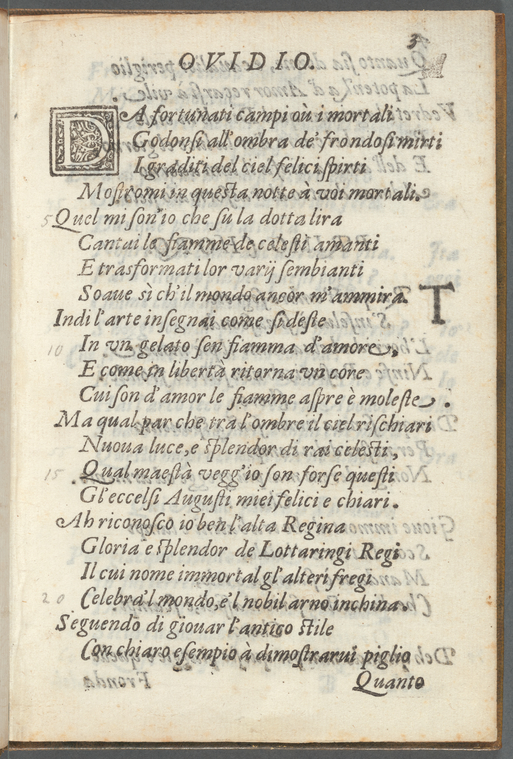 3
OVIDIO.
DA fortunati campi où i mortali
Godonsi all'ombra de' frondosi mirti
I graditi del ciel felici spirti
Mostromi in questa notte à voi mortali.
5 Quel mi son'io che sù la dotta lira
Cantai le fiamme de celesti amanti
E trasformati lor varij sembianti
Soaue sì ch'il mondo ancor m'ammira.
T
Indi l'arte insegnai come si deste
10 In vn gelato sen fiamma d'amore,
E come in libertà ritorna vn core
Cui son d'amor le fiamme aspre e moleste.
Ma qual par che tra l'ombre il ciel rischiari
Nuoua luce, e splendor di rai celesti,
15 Qual maestà vegg'io son forse questi
Gl'eccelsi Augusti miei felici e chiari.
Ah riconosco io ben l'alta Regina
Gloria e splendor de Lottaringi Regi
Il cui nome immortal gl'alteri fregi
20 Celebra'l mondo, e'l nobil arno inchina.
Seguendo di giouar l'antico stile
Con chiaro esempio à dimostrarui piglio
Quanto